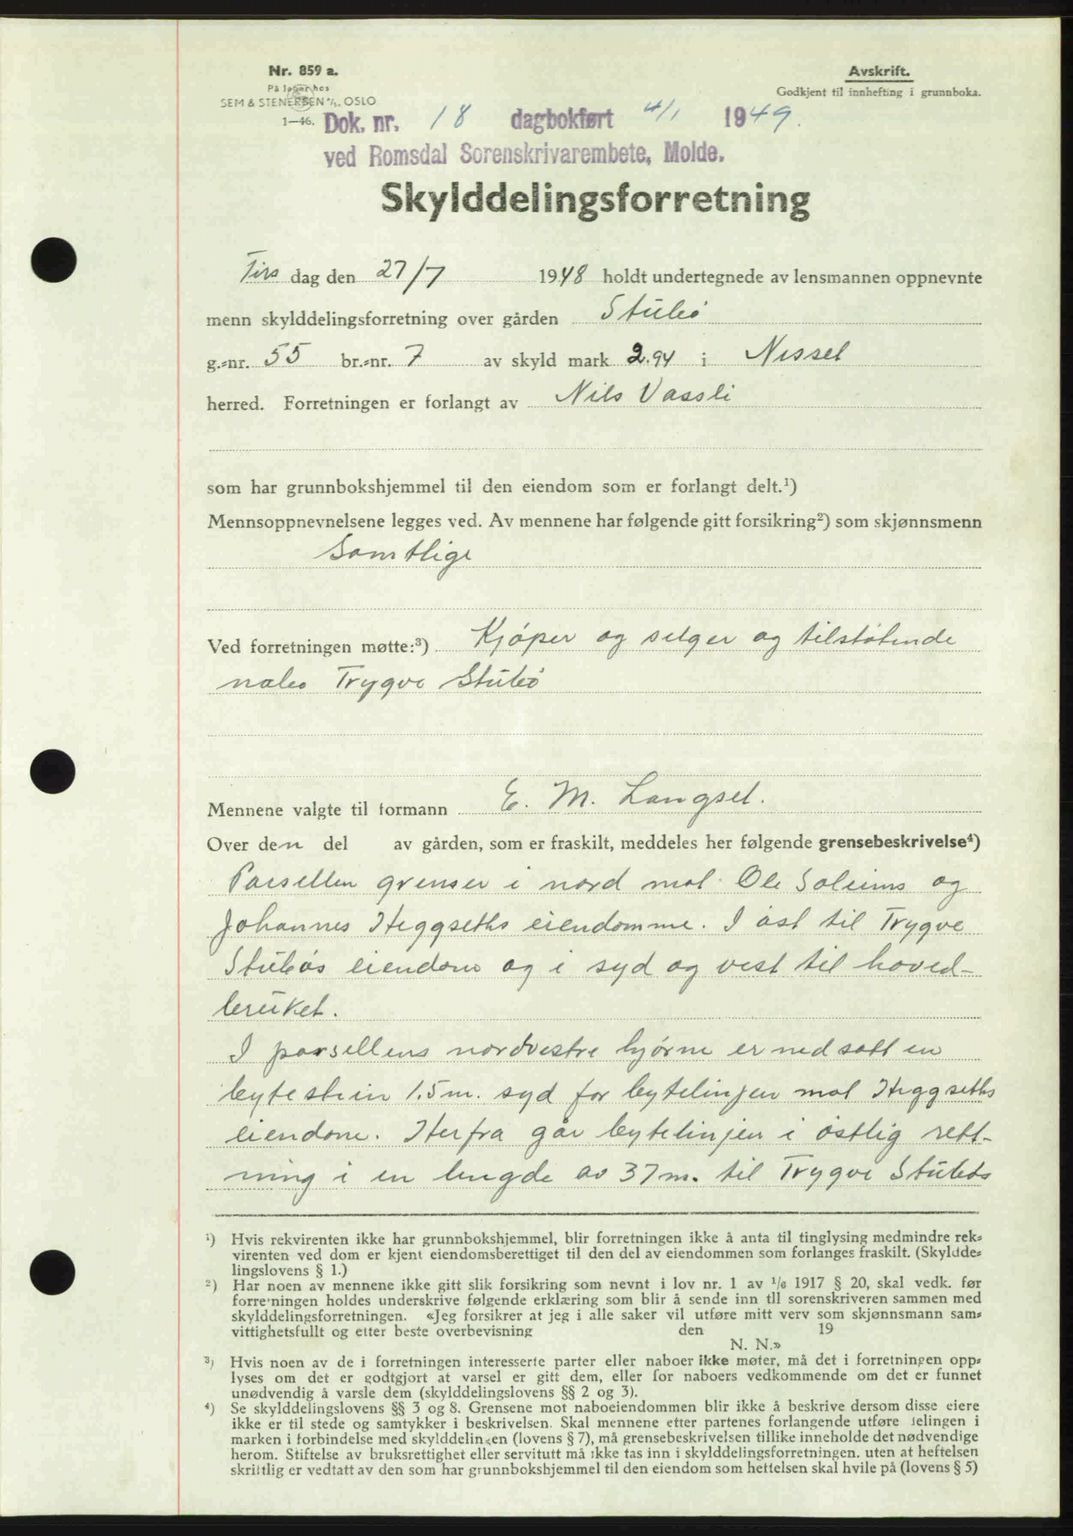 Nr. 859 a.
På lager hos
SEM & STENERSEN A/S, OSLO
1—46.
Avskrift.
Godkjent til innhefting i grunnboka.
Dok. nr. 18 dagbokført 4/1 1949.
ved Romsdal Sorenskrivarembete, Molde.
Skylddelingsforretning
Tirs dag den 27/7 1948 holdt undertegnede av lensmannen oppnevnte
menn skylddelingsforretning over gården Stubø
g.=nr. 55 br.=nr. 7 av skyld mark 2.94 i Nesset
herred. Forretningen er forlangt av Nils Vassli
som har grunnbokshjemmel til den eiendom som er forlangt delt.¹)
Mennsoppnevnelsene legges ved. Av mennene har følgende gitt forsikring²) som skjønnsmenn
Samtlige
Ved forretningen møtte:³) Kjøper og selger og tilstøtende
nabo Trygve Stubø
Mennene valgte til formann E. M. Langset.
Over den del av gården, som er fraskilt, meddeles her følgende grensebeskrivelse⁴)
Parsellen grenser i nord mot Ole Soleims og
Johannes Heggseths eiendomme. I øst til Trygve
Stubøs eiendom og i syd og vest til hoved-
bruket.
I parsellens nordvestre hjørne er nedsatt en
bytestein 1.5 m. syd for bytelinjen mot Heggseths
eiendom. Herfra går bytelinjen i østlig rett-
ning i en lengde av 37 m. til Trygve Stubøs
¹) Hvis rekvirenten ikke har grunnbokshjemmel, blir forretningen ikke å anta til tinglysing medmindre rek=
virenten ved dom er kjent eiendomsberettiget til den del av eiendommen som forlanges fraskilt. (Skyldde=
lingslovens § 1.)
²) Har noen av mennene ikke gitt slik forsikring som nevnt i lov nr. 1 av 1/6 1917 § 20, skal vedk. før
forretningen holdes underskrive følgende erklæring som blir å sende inn til sorenskriveren sammen med
skylddelingsforretningen. «Jeg forsikrer at jeg i alle saker vil utføre mitt verv som skjønnsmann sam=
vittighetsfullt og etter beste overbevisning den 19
N. N.»
³) Hvis noen av de i forretningen interesserte parter eller naboer ikke møter, må det i forretningen opp=
lyses om det er godtgjort at varsel er gitt dem, eller for naboers vedkommende om det er funnet
unødvendig å varsle dem (skylddelingslovens §§ 2 og 3).
⁴) Se skylddelingslovens §§ 3 og 8. Grensene mot naboeiendommen blir ikke å beskrive dersom disse eiere
ikke er til stede og samtykker i beskrivelsen. Skal mennene etter partenes forlangende utføre delingen i
marken i forbindelse med skylddelingen (lovens § 7), må grensebeskrivelsen tillike inneholde det nødvendige
herom. Stiftelse av bruksrettighet eller servitutt må ikke tas inn i skylddelingsforretningen. uten at heftelsen
skriftlig er vedtatt av den som har grunnbokshjemmel til den eiendom som heftelsen skal hvile på (lovens § 5)